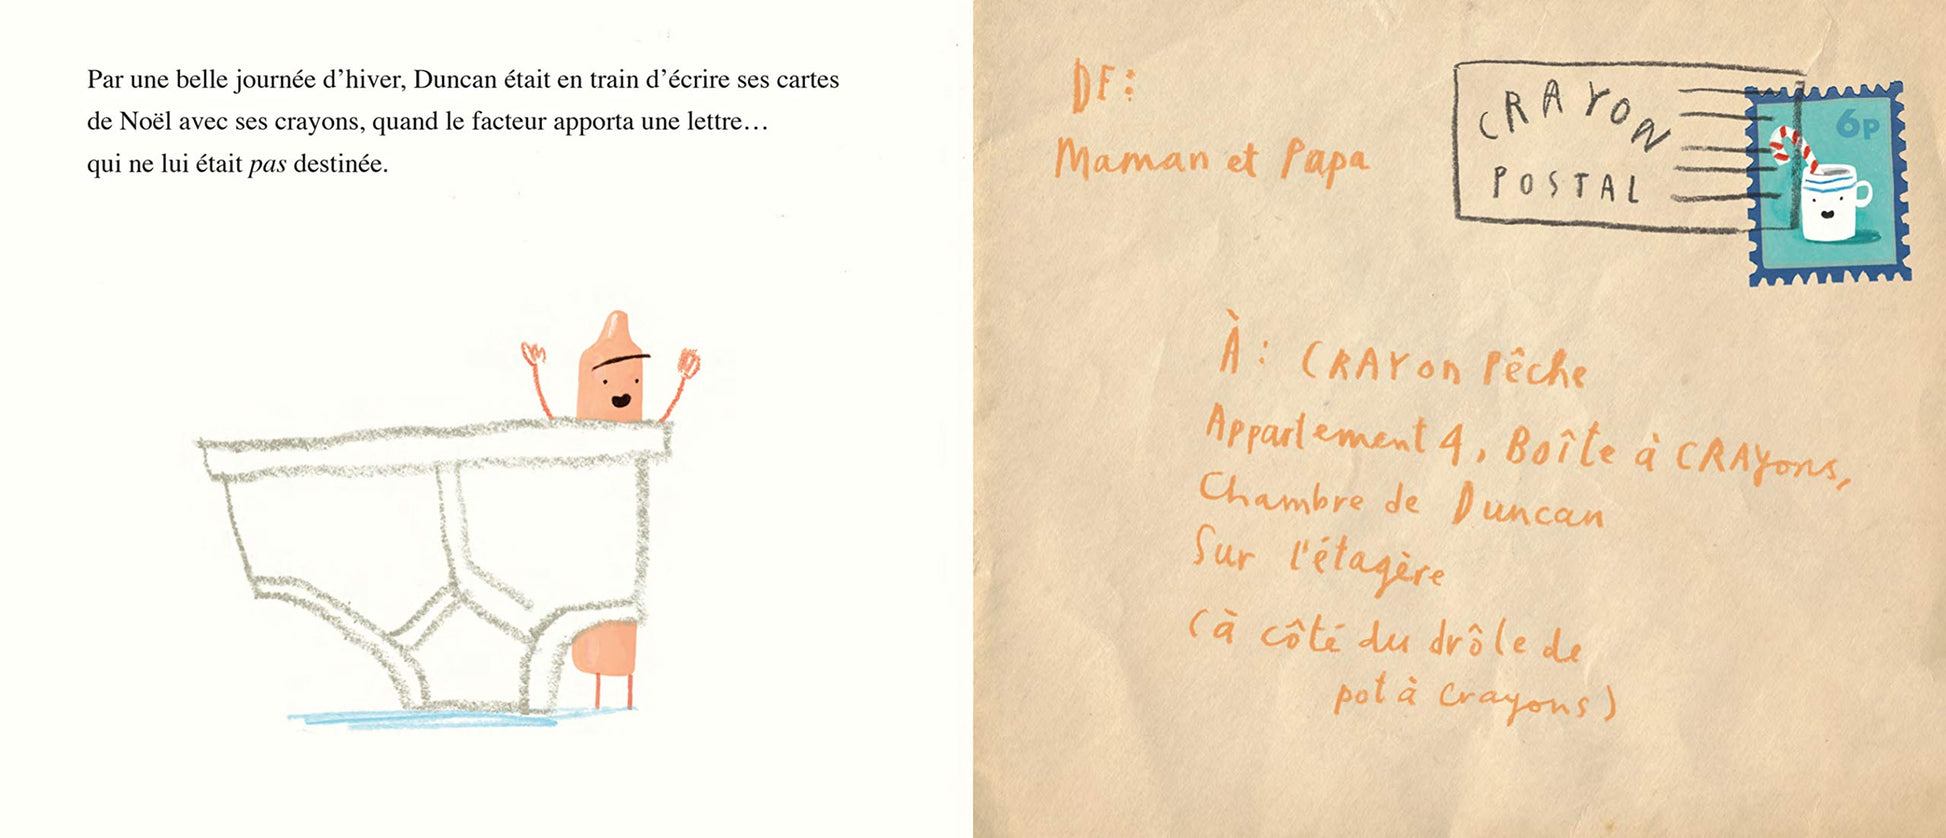 Par une belle journée d’hiver, Duncan était en train d’écrire ses cartes
de Noël avec ses crayons, quand le facteur apporta une lettre…
qui ne lui était pas destinée.
DE:
Maman et Papa
CRAYON
POSTAL
6P
À: CRAYon Pêche
Appartement 4, Boîte à CRAYons,
Chambre de Duncan
Sur l'étagère
(à côté du drôle de
pot à crayons)